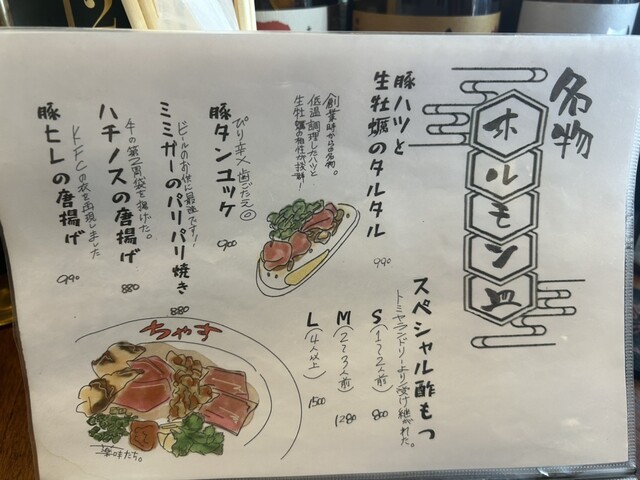 名物
ホルモン皿
豚ハツと
生牡蠣のタルタル
990
創業時からの名物。
低温調理したハツと
生牡蠣の相性が抜群!
豚タンユッケ
900
ぴり辛×歯ごたえ◎
ミミガーのパリパリ焼き
880
ビールのお供に最強です!
ハチノスの唐揚げ
880
牛の第二胃袋を揚げた。
豚ヒレの唐揚げ
990
KFCの衣を再現しました
スペシャル酢もつ
トミヤランドリーより受け継がれた。
S(1〜2人前) 800
M(2〜3人前) 1280
L(4人以上) 1500
ちゃす
薬味たち。
12